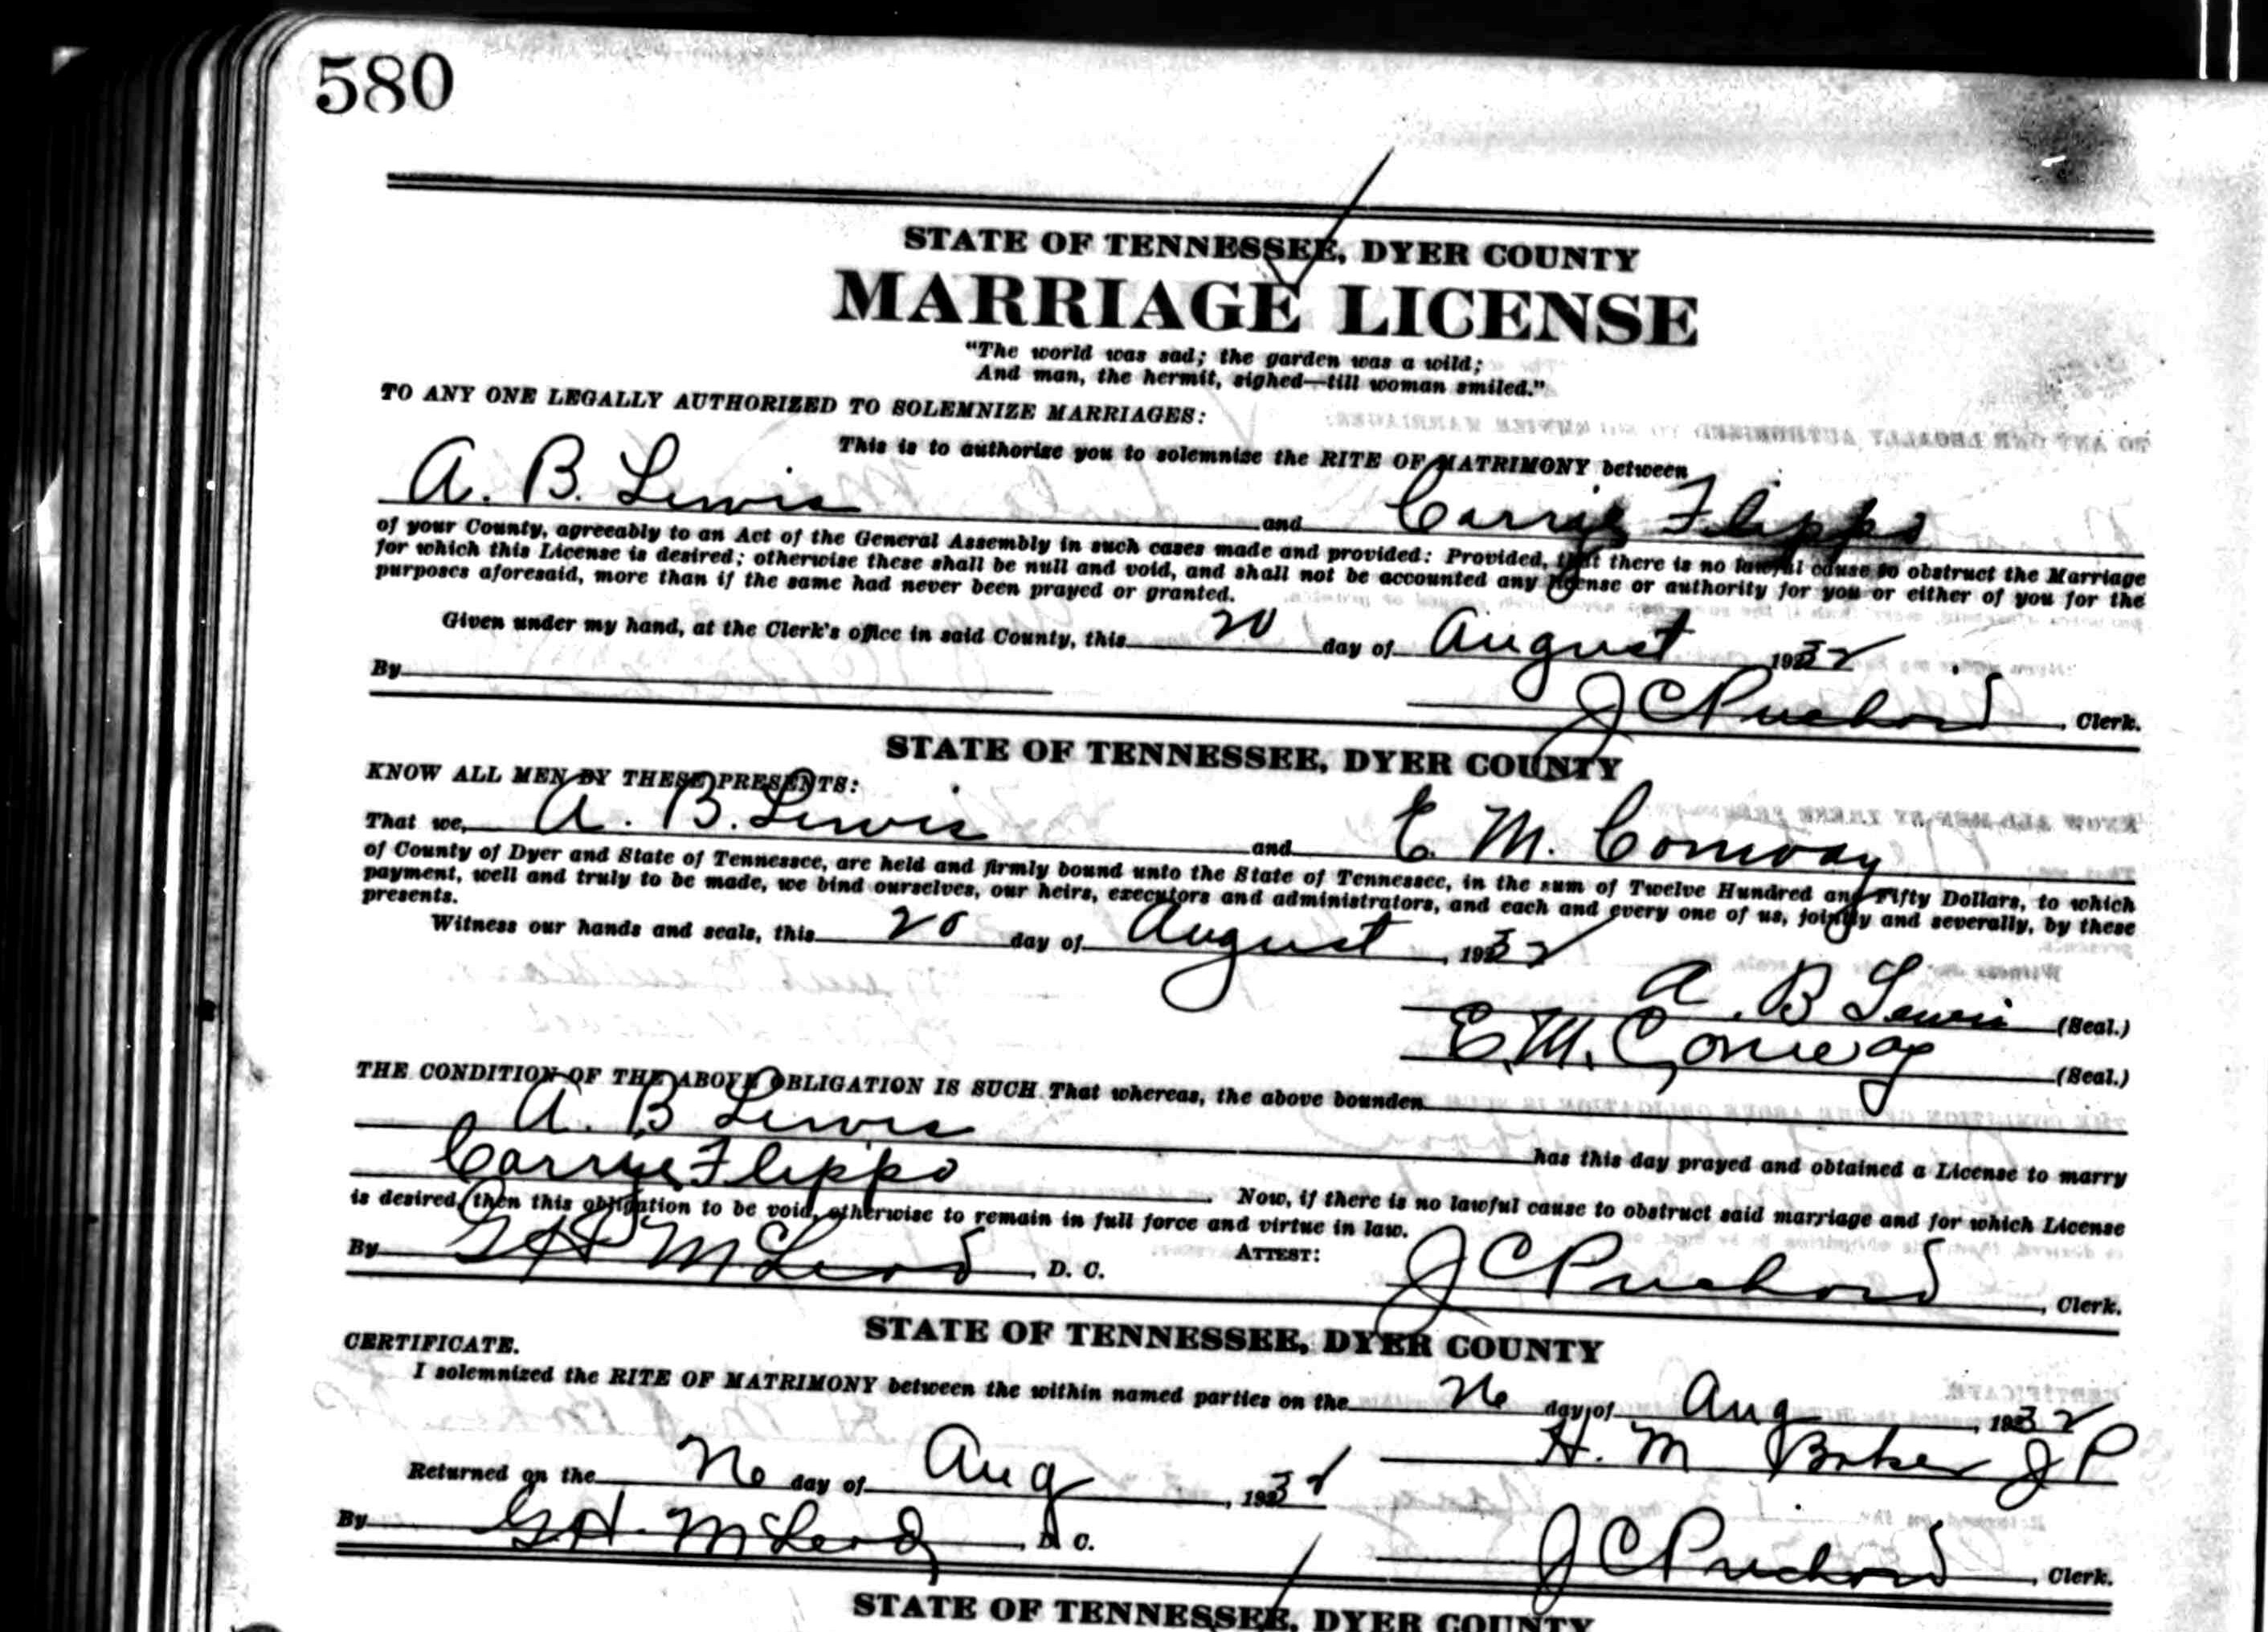 580
STATE OF TENNESSEE, DYER COUNTY
MARRIAGE LICENSE
"The world was sad; the garden was a wild;
And man, the hermit, sighed—till woman smiled."
TO ANY ONE LEGALLY AUTHORIZED TO SOLEMNIZE MARRIAGES:
This is to authorize you to solemnize the RITE OF MATRIMONY between
A. B. Lewis and Carrie Flippo
of your County, agreeably to an Act of the General Assembly in such cases made and provided: Provided, that there is no lawful cause to obstruct the Marriage
for which this License is desired; otherwise these shall be null and void, and shall not be accounted any license or authority for you or either of you for the
purposes aforesaid, more than if the same had never been prayed or granted.
Given under my hand, at the Clerk's office in said County, this 20 day of August 1932
By J C Prichard, Clerk.
STATE OF TENNESSEE, DYER COUNTY
KNOW ALL MEN BY THESE PRESENTS:
That we, A. B. Lewis and E. M. Conway
of County of Dyer and State of Tennessee, are held and firmly bound unto the State of Tennessee, in the sum of Twelve Hundred and Fifty Dollars, to which
payment, well and truly to be made, we bind ourselves, our heirs, executors and administrators, and each and every one of us, jointly and severally, by these
presents.
Witness our hands and seals, this 20 day of August, 1932
A. B Lewis (Seal.)
E. M. Conway (Seal.)
THE CONDITION OF THE ABOVE OBLIGATION IS SUCH That whereas, the above bounden
A. B Lewis has this day prayed and obtained a License to marry
Carrie Flippo. Now, if there is no lawful cause to obstruct said marriage and for which License
is desired, then this obligation to be void, otherwise to remain in full force and virtue in law.
By G H McLeod, D. C. ATTEST: J C Prichard, Clerk.
STATE OF TENNESSEE, DYER COUNTY
CERTIFICATE.
I solemnized the RITE OF MATRIMONY between the within named parties on the 20 day of Aug, 1932
H. M Baker J P
Returned on the 26 day of Aug, 1932
By G H. McLeod, D. C. J C Prichard, Clerk.
STATE OF TENNESSEE, DYER COUNTY